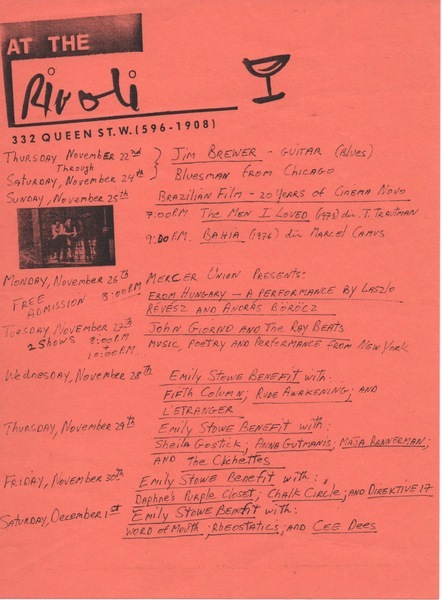 AT THE
Rivoli
332 QUEEN ST. W. (596-1908)
THURSDAY NOVEMBER 22nd
Through
SATURDAY, NOVEMBER 24th
JIM BREWER - GUITAR (Blues)
BLUESMAN FROM CHICAGO
SUNDAY, NOVEMBER 25th
BRAZILIAN FILM - 20 YEARS OF CINEMA NOVO
7:00 P.M THE MEN I LOVED (1973) dir. T. TRAUTMAN
9:00 P.M. BAHIA (1976) dir MARCEL CAMUS
MONDAY, NOVEMBER 26th
FREE ADMISSION 8:00 P.M
MERCER UNION PRESENTS:
FROM HUNGARY - A PERFORMANCE BY LASZLO
RÉVÉSZ AND ANDRÁS BÖRÖCZ
TUESDAY, NOVEMBER 27th
2 SHOWS 8:00 P.M
10:00 P.M.
JOHN GIORNO AND THE RAY BEATS
MUSIC, POETRY AND PERFORMANCE FROM NEW YORK
WEDNESDAY, NOVEMBER 28th
EMILY STOWE BENEFIT with
FIFTH COLUMN; RUDE AWAKENING; AND
L'ETRANGER
THURSDAY, NOVEMBER 29th
EMILY STOWE BENEFIT with:
SHEILA GOSTICK; ANNA GUTMANIS; MAJA BANNERMAN;
AND THE CLICHETTES
FRIDAY, NOVEMBER 30th
EMILY STOWE BENEFIT with:
DAPHNE'S PURPLE CLOSET; CHALK CIRCLE; AND DIREKTIVE 17
SATURDAY, DECEMBER 1st
EMILY STOWE BENEFIT with:
WORD OF MOUTH; RHEOSTATICS; AND CEE DEES